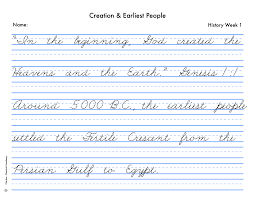 Creation & Earliest People
Name: History Week 1
"In the beginning, God created the
Heavens and the Earth." Genesis 1:1
Around 5000 B.C., the earliest people
settled the Fertile Cresant from the
Persian Gulf to Egypt.